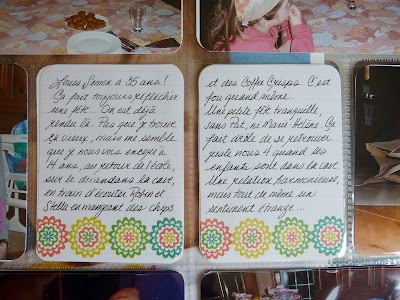 Louis Simon a 35 ans!
Ça fait toujours réfléchir
une fête. On est déjà
rendu là. Pas que j'trouve
ça vieux, mais me semble
que j'nous vois encore à
14 ans, au retour de l'école,
sur le divan dans la cave,
en train d'écouter Robin et
Stella en mangeant des chips
et des Coffee Crisps. C'est
fou quand même.
Une petite fête tranquille,
sans Pat, ni Marie Hélène. Ça
fait drôle de se retrouver
juste nous 4 quand les
enfants sont dans la cave.
Une relation harmonieuse,
mais tout de même un
sentiment étrange...